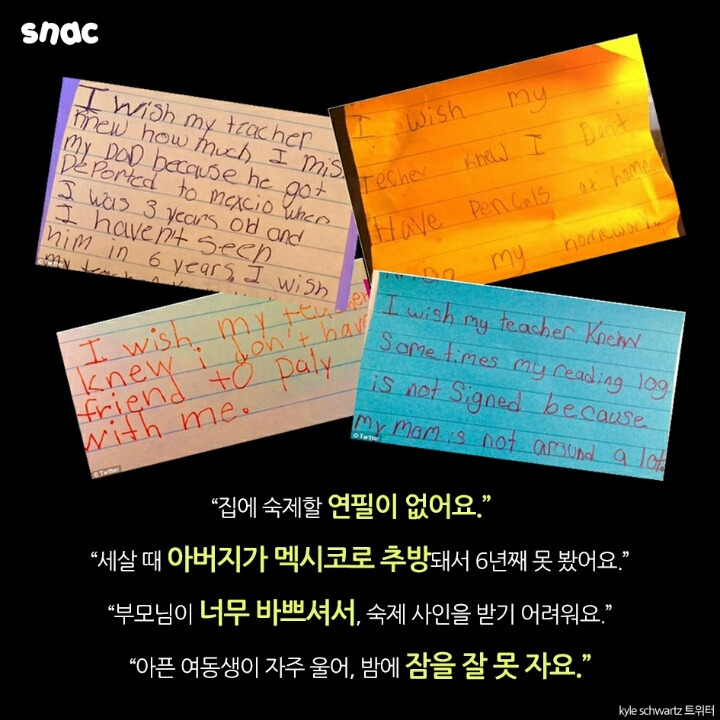 snac
I wish my teacher
knew how much I mis
my DAD because he got
DePorted to mexcio when
I was 3 years old and
I haven't seen
him in 6 years. I wish
I wish my
Techer knew I Dont
Have Pencals at home
Do my homework.
I wish my
knew i don't hav
friend to paly
with me.
© Twitter
I wish my teacher Knew
Some times my reading log
is not Signed because
my mom is not around a lot.
© Twitter
“집에 숙제할 연필이 없어요.”
“세살 때 아버지가 멕시코로 추방돼서 6년째 못 봤어요.”
“부모님이 너무 바쁘셔서, 숙제 사인을 받기 어려워요.”
“아픈 여동생이 자주 울어, 밤에 잠을 잘 못 자요.”
kyle schwartz 트위터